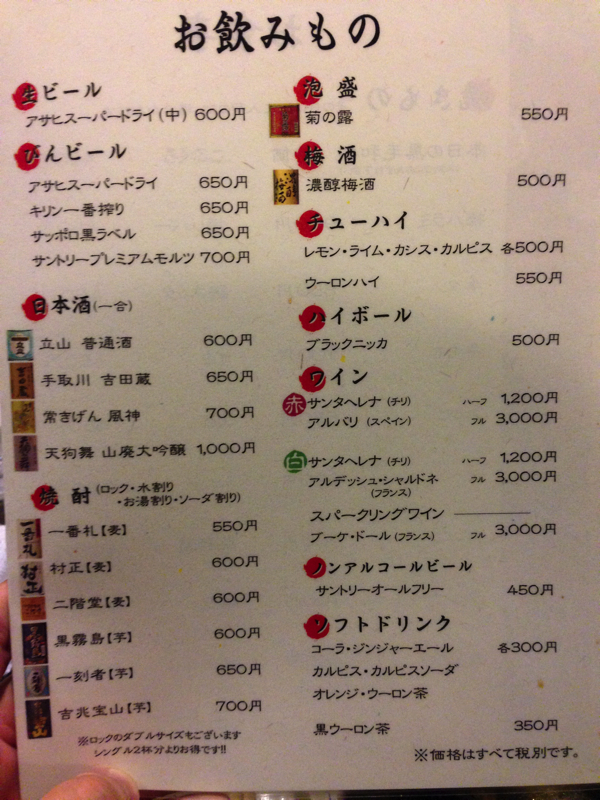 お飲みもの
生ビール
アサヒスーパードライ(中) 600円
びんビール
アサヒスーパードライ 650円
キリン一番搾り 650円
サッポロ黒ラベル 650円
サントリープレミアムモルツ 700円
日本酒(一合)
立山 普通酒 600円
手取川 吉田蔵 650円
常きげん 風神 700円
天狗舞 山廃大吟醸 1,000円
焼酎(ロック・水割り
・お湯割り・ソーダ割り)
一番札【麦】 550円
村正【麦】 600円
二階堂【麦】 600円
黒霧島【芋】 600円
一刻者【芋】 650円
吉兆宝山【芋】 700円
※ロックのダブルサイズもございます
シングル2杯分よりお得です!!
泡盛
菊の露 550円
梅酒
濃醇梅酒 500円
チューハイ
レモン・ライム・カシス・カルピス 各500円
ウーロンハイ 550円
ハイボール
ブラックニッカ 500円
ワイン
赤 サンタヘレナ(チリ) ハーフ 1,200円
アルバリ(スペイン) フル 3,000円
白 サンタヘレナ(チリ) ハーフ 1,200円
アルデッシュ・シャルドネ フル 3,000円
(フランス)
スパークリングワイン
ブーケ・ドール(フランス) フル 3,000円
ノンアルコールビール
サントリーオールフリー 450円
ソフトドリンク
コーラ・ジンジャーエール 各300円
カルピス・カルピスソーダ
オレンジ・ウーロン茶
黒ウーロン茶 350円
※価格はすべて税別です。